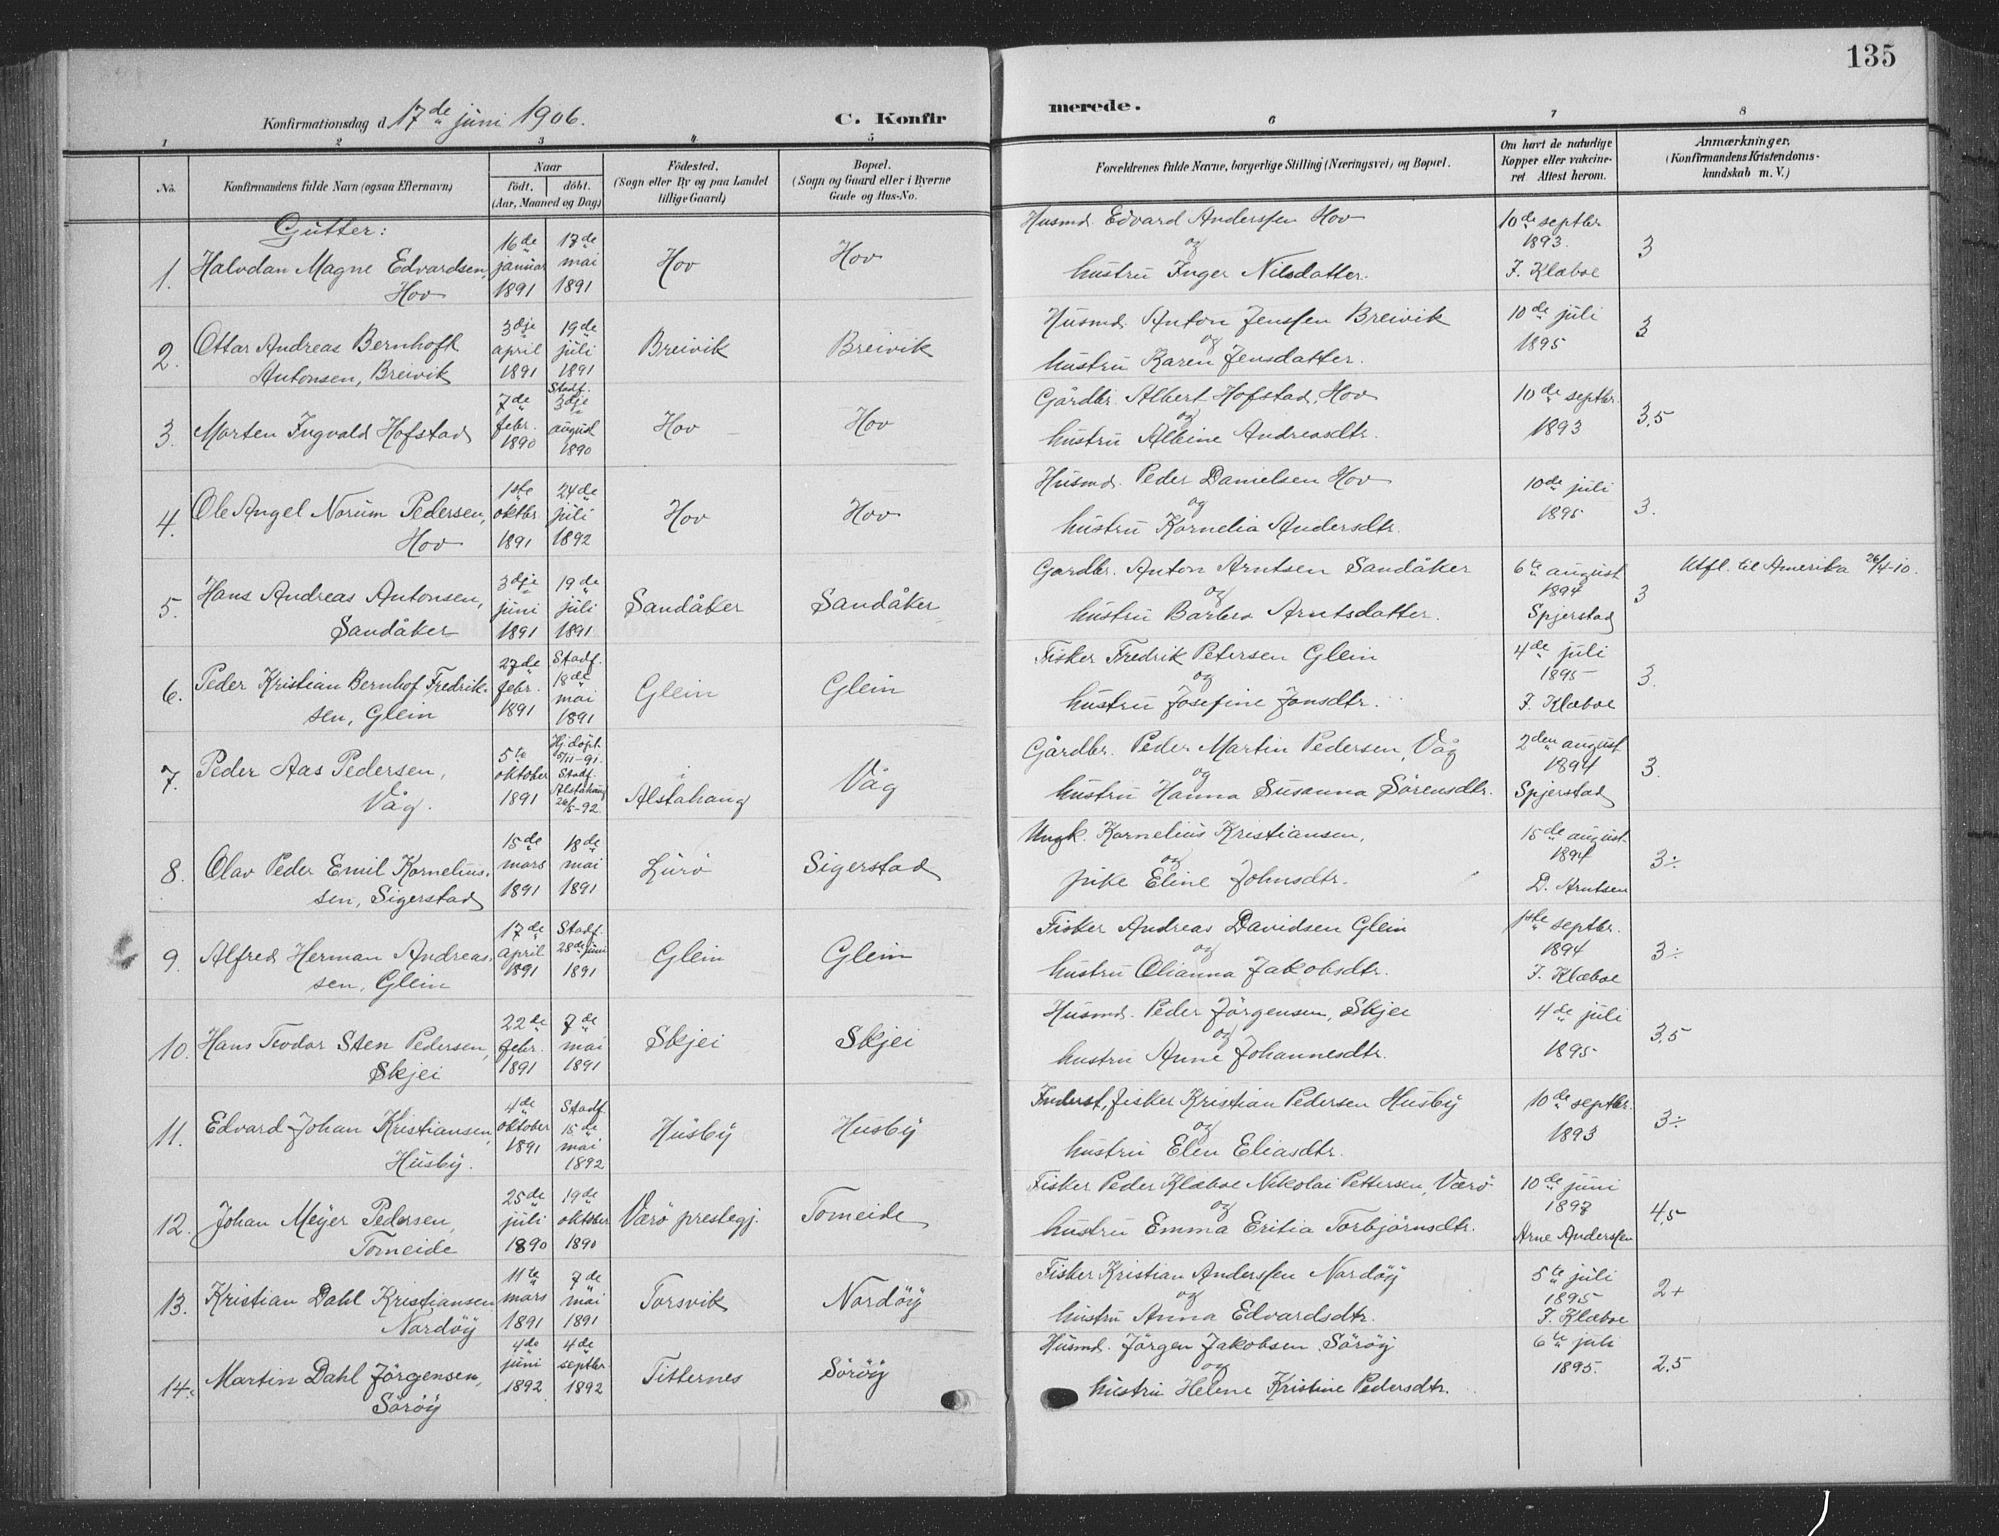 135
Konfirmationsdag d. 17de juni 1906.
C. Konfirmerede.
1 2 3 4 5 6 7 8
No.
Konfirmandens fulde Navn (ogsaa Efternavn)
Naar
födt. döbt.
(Aar, Maaned og Dag)
Födested.
(Sogn eller By og paa Landet
tillige Gaard)
Bopæl.
(Sogn og Gaard eller i Byerne
Gade og Hus-No.
Forældrenes fulde Navne, borgerlige Stilling (Næringsvei) og Bopæl.
Om havt de naturlige
Kopper eller vakcine-
ret Attest herom.
Anmærkninger.
(Konfirmandens Kristendoms-
kundskab m. V.)
Gutter:
1. Halvdan Magne Edvardsen,
Hov
16de januar 1891
17de mai 1891
Hov
Hov
Husmd. Edvard Anderssen Hov
og
hustru Inger Nilsdatter.
10de septbr. 1893.
J. Klæboe
3
2. Ottar Andreas Bernhoft
Antonsen, Breivik
3dje april 1891
19de juli 1891
Breivik
Breivik
Husmd. Anton Jenssen Breivik
og
hustru Karen Jensdatter.
10de juli 1895
3
3. Morten Ingvald Hofstad
7de febr. 1890
Stadf. 3dje august 1890
Hov
Hov
Gårdbr. Albert Hofstad, Hov
og
hustru Albine Andreasdtr.
10de septbr. 1893
3,5
4. Ole Angel Norum Pedersen,
Hov
1ste oktbr. 1891
24de juli 1892
Hov
Hov
Husmd. Peder Danielsen Hov
og
hustru Kornelia Andersdtr.
10de juli 1895
3.
5. Hans Andreas Antonsen,
Sandåker
3dje juni 1891
19de juli 1891
Sandåker
Sandåker
Gardbr. Anton Arntsen Sandåker
og
hustru Barbro Arntsdatter.
6te august 1894
Spjerstad
3
Utfl. til Amerika 26/4-10.
6. Peder Kristian Bernhof Fredrik-
sen, Glein
27de febr. 1891
Stadf. 18de mai 1891
Glein
Glein
Fisker Fredrik Petersen Glein
og
hustru Josefine Jonsdtr.
4de juli 1895
J. Klæboe
3.
7. Peder Aas Pedersen,
Våg.
5te oktober 1891
Hj.döpt. 5/11-91.
Stadf. Alstahaug 26/5-92
Alstahaug
Våg
Gårdbr. Peder Martin Pedersen, Våg
og
hustru Hanna Susanna Sörensdtr.
2den august 1894
Spjerstad
3.
8. Olav Peder Emil Kornelius-
sen, Sigerstad
15de mars 1891
18de mai 1891
Lurö
Sigerstad
Ungk. Kornelius Kristiansen,
og
pike Eline Johnsdtr.
15de august 1894
D. Arntsen
3÷
9. Alfred Herman Andreas-
sen, Glein
17de april 1891
Stadf. 28de juni 1891
Glein
Glein
Fisker Andreas Davidsen Glein
og
hustru Olianna Jakobsdtr.
1ste septbr. 1894
J. Klæboe
3÷
10. Hans Teodor Sten Pedersen,
Skjei
22de febr. 1891
7de mai 1891
Skjei
Skjei
Husmd. Peder Jörgensen, Skjei
og
hustru Anne Johannesdtr.
4de juli 1895
3,5
11. Edvard Johan Kristiansen,
Husby.
4de oktober 1891
Stadf. 15de mai 1892
Husby
Husby
Inderst, fisker Kristian Pedersen Husby
og
hustru Elen Eliasdtr.
10de septbr. 1893
3÷
12. Johan Meyer Pedersen,
Tomeide
25de juli 1890
19de oktober 1890
Værö prestegj.
Tomeide
Fisker Peder Klæboe Nikolai Pettersen, Værö
og
hustru Emma Eritia Torbjörnsdtr.
10de juni 1898
Arne Anderssen
4,5
13. Kristian Dahl Kristiansen
Nordöy
11te mars 1891
7de mai 1891
Torsvik
Nordöy
Fisker Kristian Anderssen Nordöy
og
hustru Anna Edvardsdtr.
5te juli 1895
J. Klæboe
2+
14. Martin Dahl Jörgensen,
Söröy
4de juni 1892
4de septbr 1892
Titternes
Söröy
Husmd. Jörgen Jakobsen Söröy
og
hustru Helene Kristine Pedersdtr.
6te juli 1895.
2,5